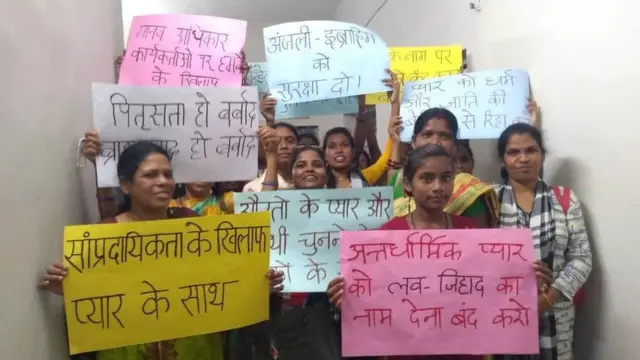 मानव अधिकार
कार्यकर्ताओ पर
के खिलाफ
अंजली - इब्राहिम
को
सुरक्षा दो!
के नाम पर
प्यार को धर्म
और जाति की
से रिहा
पितृसत्ता हो बर्बाद
हो बर्बाद
औरतो के प्यार और
चुनने
के
सांप्रदायिकता के खिलाफ
प्यार के साथ
अन्तर्धार्मिक प्यार
को लव-जिहाद का
नाम देना बंद करो